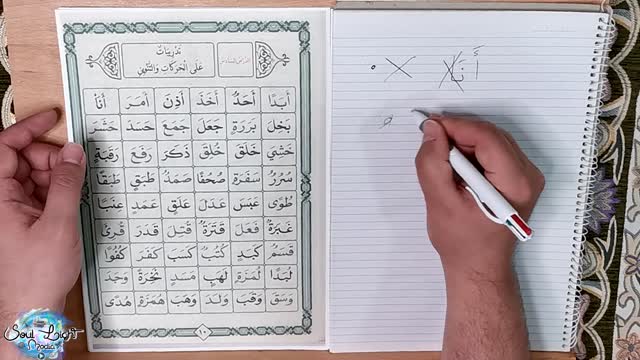 الدرس السادس
تَدْرِيبَاتٌ
عَلَى الْحَرَكَاتِ وَالتَّنْوِينِ
أَبَدًا أَحَدٌ أَخَذَ أَذِنَ أَمَرَ أَنَا
بَخِلَ بَرَرَةٍ جَعَلَ جَمَعَ حَسَدَ حَشَرَ
خَشِيَ خَلَقَ خُلِقَ ذَكَرَ رَفَعَ رَقَبَةٍ
سُرُرٌ سَفَرَةٍ صُحُفًا صَمَدٌ طَبَقٍ طَبَقًا
طُوًى عَبَسَ عَدَلَ عَلَقٍ عَمَدٍ عِنَبًا
غَبَرَةٌ فَعَلَ قَتَرَةٌ قُتِلَ قَدَرَ قُرِئَ
قَسَمٌ كَبَدٍ كُتُبٌ كَسَبَ كَفَرَ كُفُوًا
لُبَدًا لُمَزَةٍ لَهَبٍ مَسَدٍ نَخِرَةً وَجَدَ
وَسَقَ وَقَبَ وَلَدَ وَهَبَ هُمَزَةٍ هُدًى
١٠
أَنَا
Soul Light
Studios